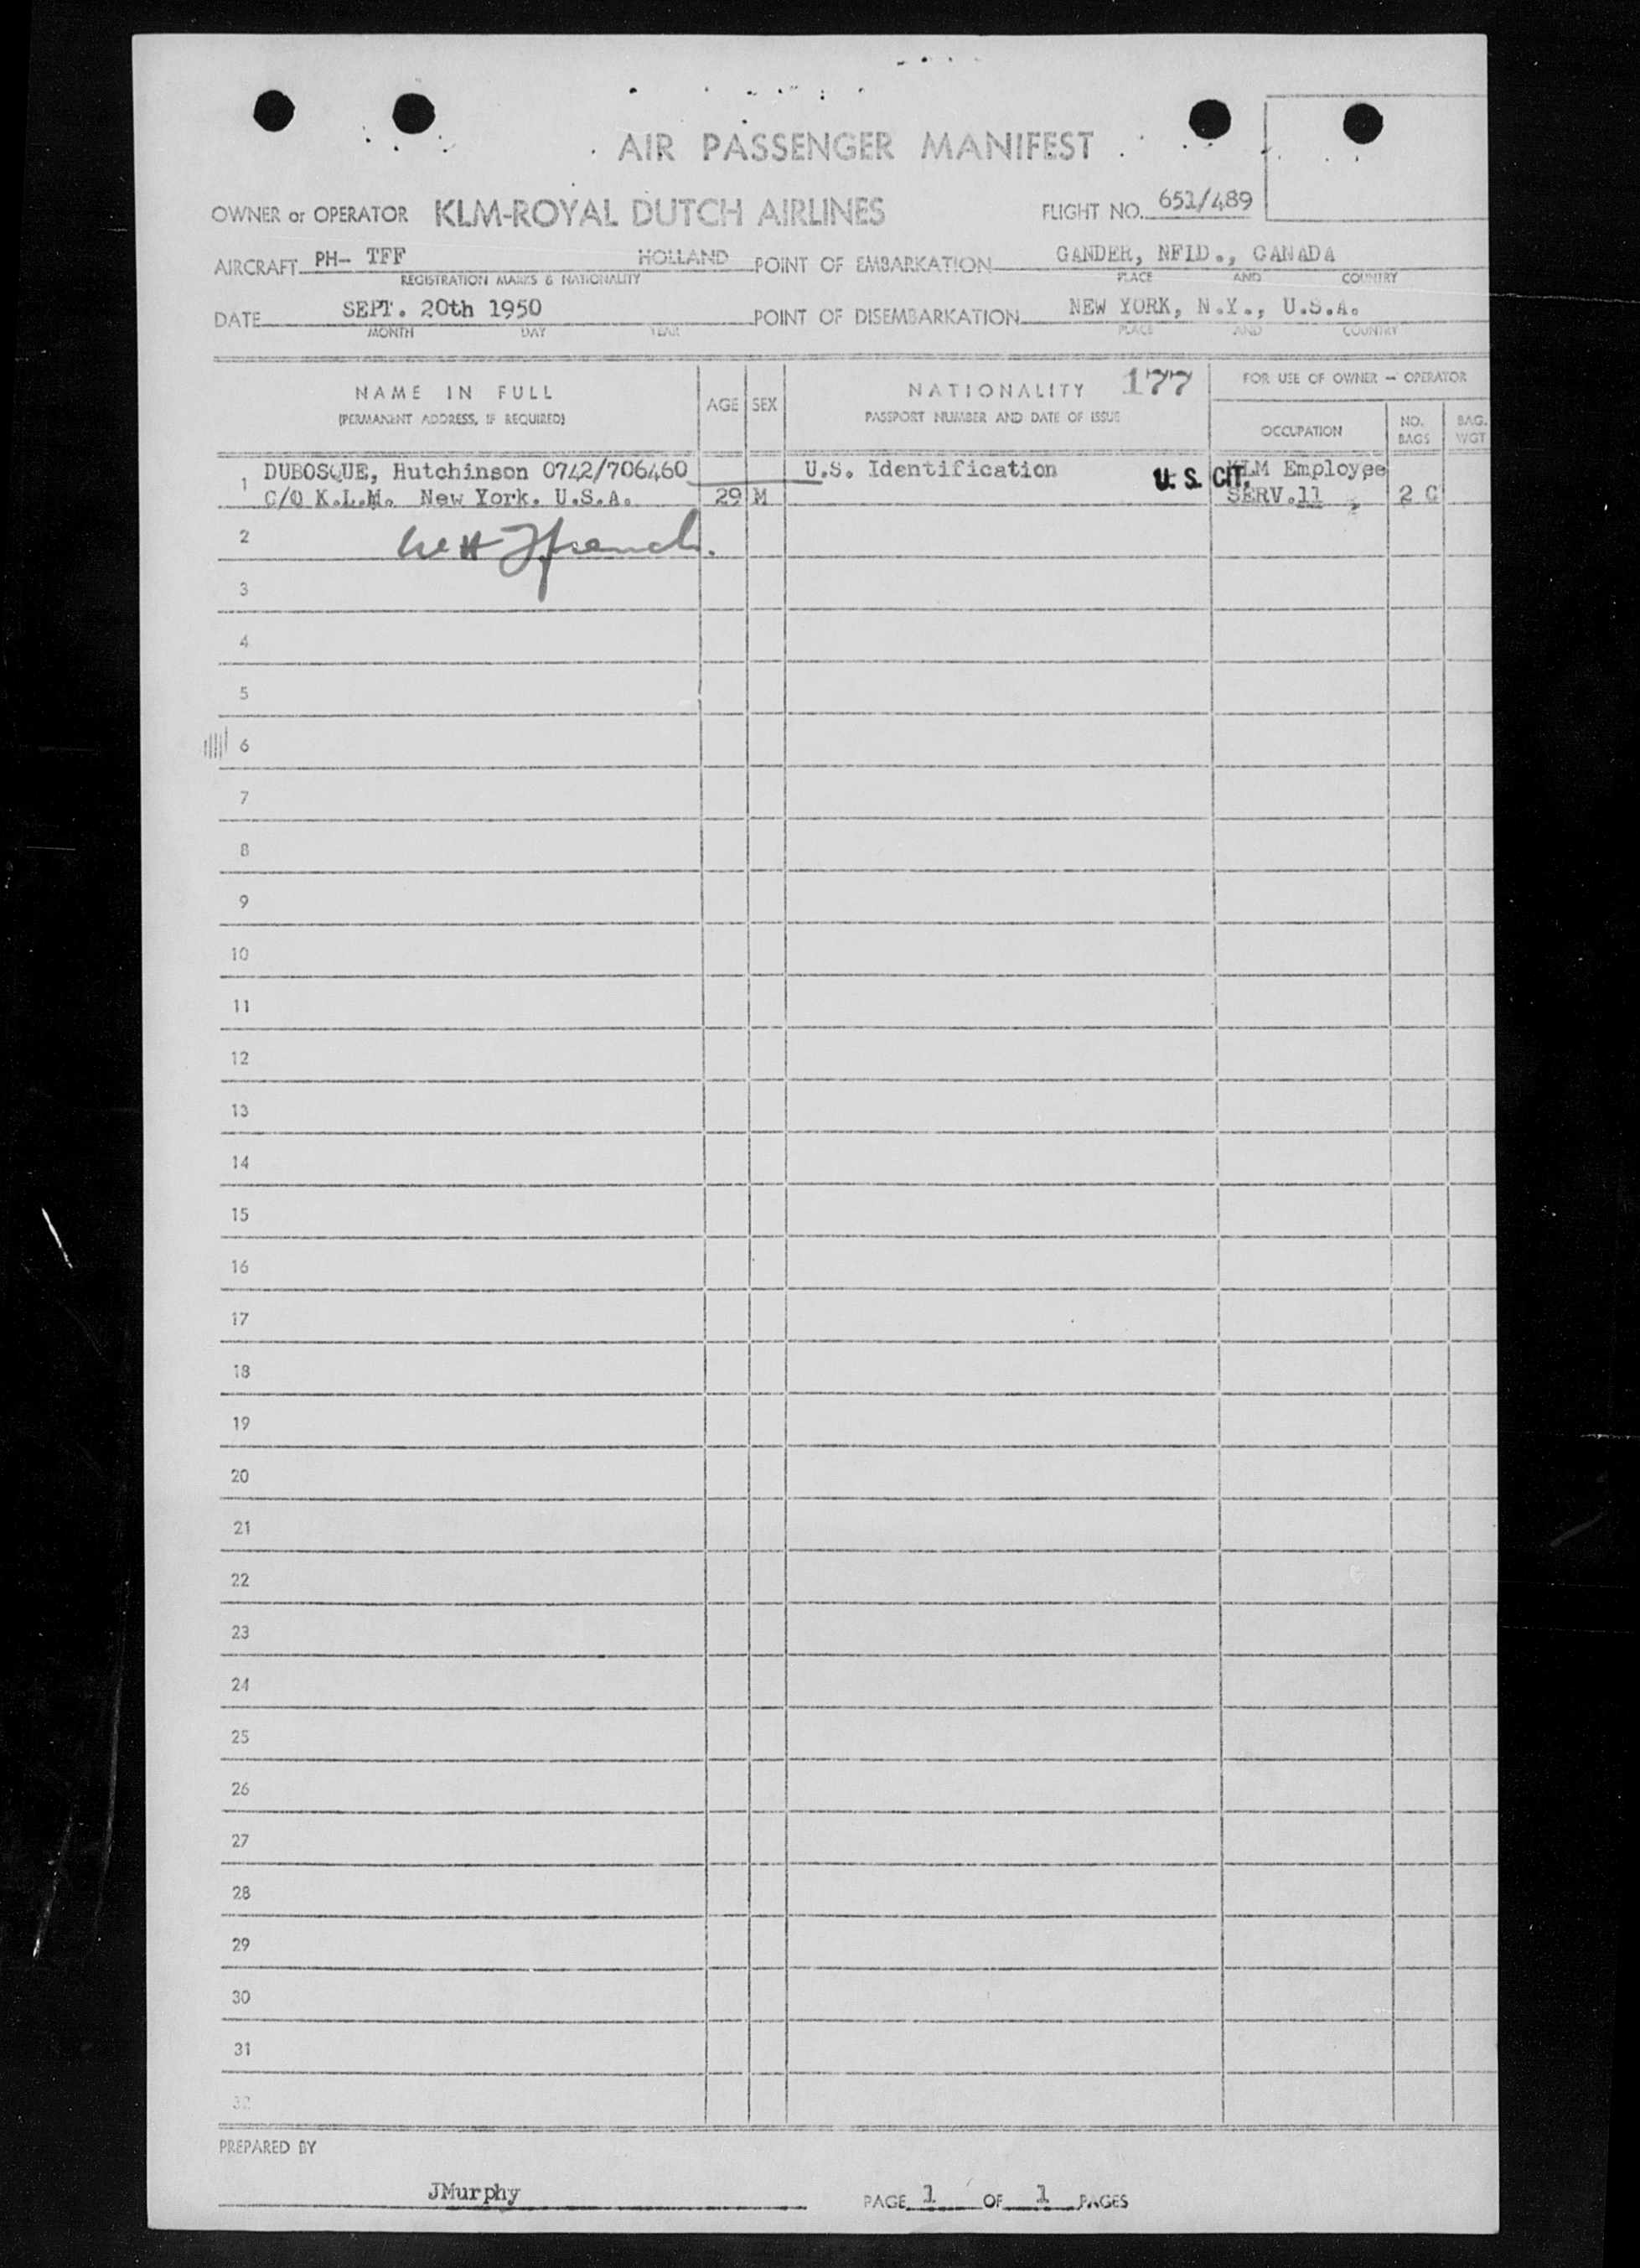 AIR PASSENGER MANIFEST
OWNER or OPERATOR KLM-ROYAL DUTCH AIRLINES FLIGHT NO. 651/489
AIRCRAFT PH- TFF HOLLAND POINT OF EMBARKATION GANDER, NFLD., CANADA
REGISTRATION MARKS & NATIONALITY PLACE AND COUNTRY
DATE SEPT. 20th 1950 POINT OF DISEMBARKATION NEW YORK, N.Y., U.S.A.
MONTH DAY YEAR PLACE AND COUNTRY
NAME IN FULL AGE SEX NATIONALITY 177 FOR USE OF OWNER - OPERATOR
(PERMANENT ADDRESS, IF REQUIRED) PASSPORT NUMBER AND DATE OF ISSUE OCCUPATION NO. BAGS BAG. WGT
1 DUBOSQUE, Hutchinson 0742/706460 U.S. Identification U.S. CIT. KLM Employee
C/O K.L.M. New York. U.S.A. 29 M SERV.11 2 C
2
3
4
5
6
7
8
9
10
11
12
13
14
15
16
17
18
19
20
21
22
23
24
25
26
27
28
29
30
31
32
PREPARED BY
JMurphy PAGE 1 OF 1 PAGES